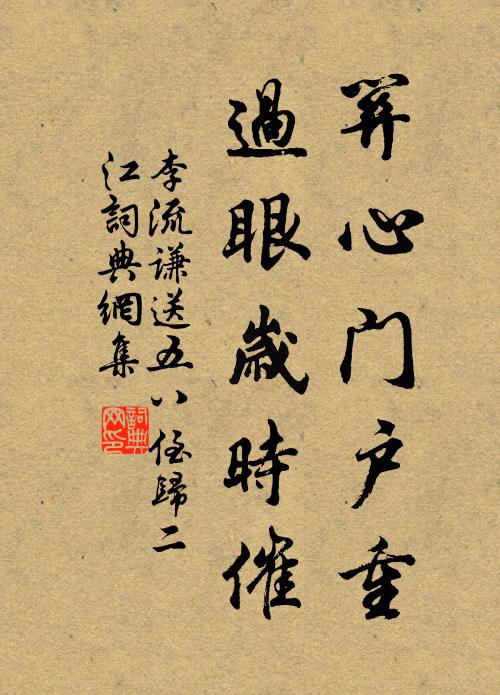 关心门户重
過眼歲時催
李流謙送五八侄歸二
江詞典網集
詞典
网印